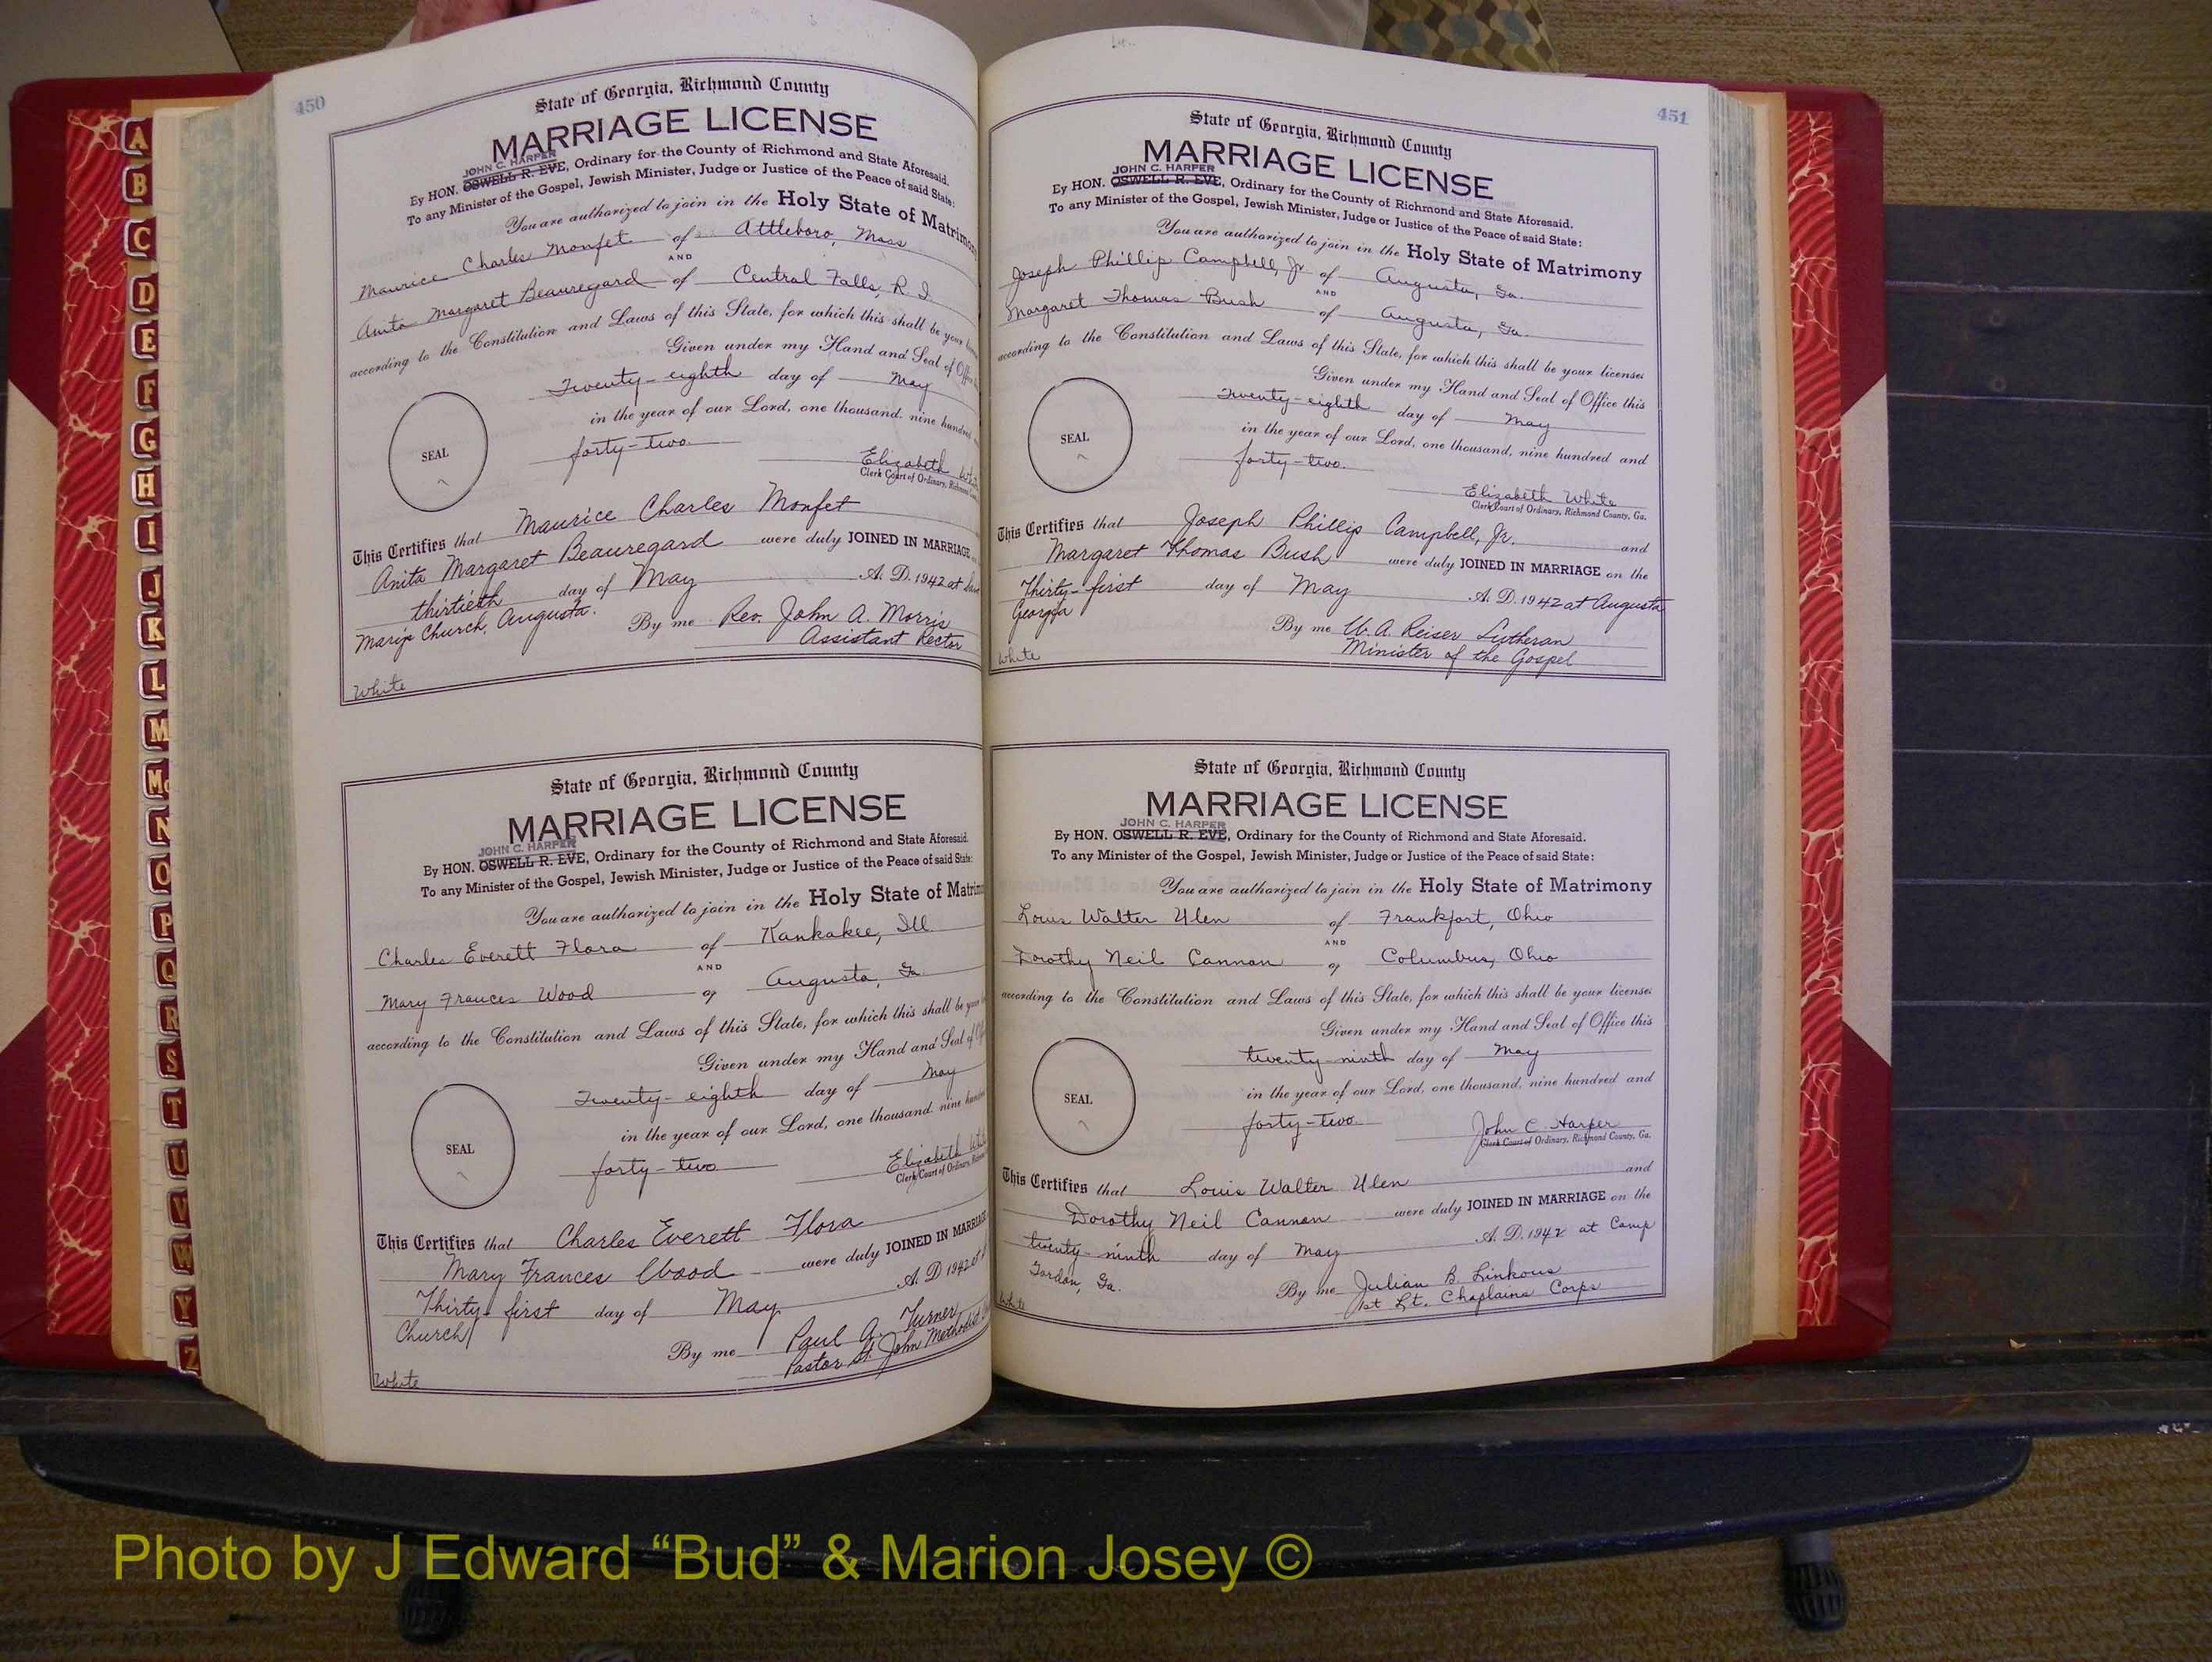 450
State of Georgia, Richmond County
MARRIAGE LICENSE
JOHN C. HARPER
By HON. OSWELL R. EVE, Ordinary for the County of Richmond and State Aforesaid.
To any Minister of the Gospel, Jewish Minister, Judge or Justice of the Peace of said State:
You are authorized to join in the Holy State of Matrimo
Maurice Charles Monfet of Attleboro, Mass
AND
Anita Margaret Beauregard of Central Falls, R. I.
according to the Constitution and Laws of this State, for which this shall be your
Given under my Hand and Seal of Offi
Twenty-eighth day of May
in the year of our Lord, one thousand, nine hundred
SEAL
forty-two
Elizabeth Whit
Clerk Court of Ordinary, Richmond
This Certifies that Maurice Charles Monfet
Anita Margaret Beauregard were duly JOINED IN MARRIAGE
thirtieth day of May A. D. 1942 at
Church, Augusta.
By me Rev. John A. Morris
Assistant Rector
White
State of Georgia, Richmond County
MARRIAGE LICENSE
JOHN C. HARPER
By HON. OSWELL R. EVE, Ordinary for the County of Richmond and State Aforesaid.
To any Minister of the Gospel, Jewish Minister, Judge or Justice of the Peace of said State:
You are authorized to join in the Holy State of Matrim
Charles Everett Flora of Kankakee, Ill.
AND
Mary Frances Wood of Augusta, Ga.
according to the Constitution and Laws of this State, for which this shall be your
Given under my Hand and Seal of
Twenty-eighth day of May
in the year of our Lord, one thousand nine hundred
SEAL
forty-two
Elizabeth Whi
Clerk Court of Ordinary,
This Certifies that Charles Everett Flora
Mary Frances Wood were duly JOINED IN MARRIAGE
Thirty-first day of May. A. D 1942 at
Church
By me Paul A. Turner
Pastor St. John Methodist
White
451
State of Georgia, Richmond County
MARRIAGE LICENSE
JOHN C. HARPER
By HON. OSWELL R. EVE, Ordinary for the County of Richmond and State Aforesaid.
To any Minister of the Gospel, Jewish Minister, Judge or Justice of the Peace of said State:
You are authorized to join in the Holy State of Matrimony
Joseph Phillip Campbell, Jr. of Augusta, Ga.
AND
Margaret Thomas Bush of Augusta, Ga.
according to the Constitution and Laws of this State, for which this shall be your license:
Given under my Hand and Seal of Office this
Twenty-eighth day of May
in the year of our Lord, one thousand, nine hundred and
SEAL
forty-two.
Elizabeth White
Clerk Court of Ordinary, Richmond County, Ga.
This Certifies that Joseph Phillip Campbell, Jr. and
Margaret Thomas Bush were duly JOINED IN MARRIAGE on the
Thirty-first day of May A. D. 1942 at Augusta
Georgia
By me W. A. Reiser Lutheran
Minister of the Gospel
White
State of Georgia, Richmond County
MARRIAGE LICENSE
JOHN C. HARPER
By HON. OSWELL R. EVE, Ordinary for the County of Richmond and State Aforesaid.
To any Minister of the Gospel, Jewish Minister, Judge or Justice of the Peace of said State:
You are authorized to join in the Holy State of Matrimony
Louis Walter Ulen of Frankfort, Ohio
AND
Dorothy Neil Cannon of Columbus, Ohio
according to the Constitution and Laws of this State, for which this shall be your license:
Given under my Hand and Seal of Office this
twenty-ninth day of May
in the year of our Lord, one thousand, nine hundred and
SEAL
forty-two
John C. Harper
Clerk Court of Ordinary, Richmond County, Ga.
This Certifies that Louis Walter Ulen and
Dorothy Neil Cannon were duly JOINED IN MARRIAGE on the
twenty-ninth day of May A. D. 1942 at Camp
Gordon, Ga.
By me Julian B. Linkous
1st Lt. Chaplains Corps
White
A
B
C
D
E
F
G
H
I
J
K
L
M
Mc
N
O
P
Q
R
S
T
U
V
W
Y
Z
Photo by J Edward “Bud” & Marion Josey ©